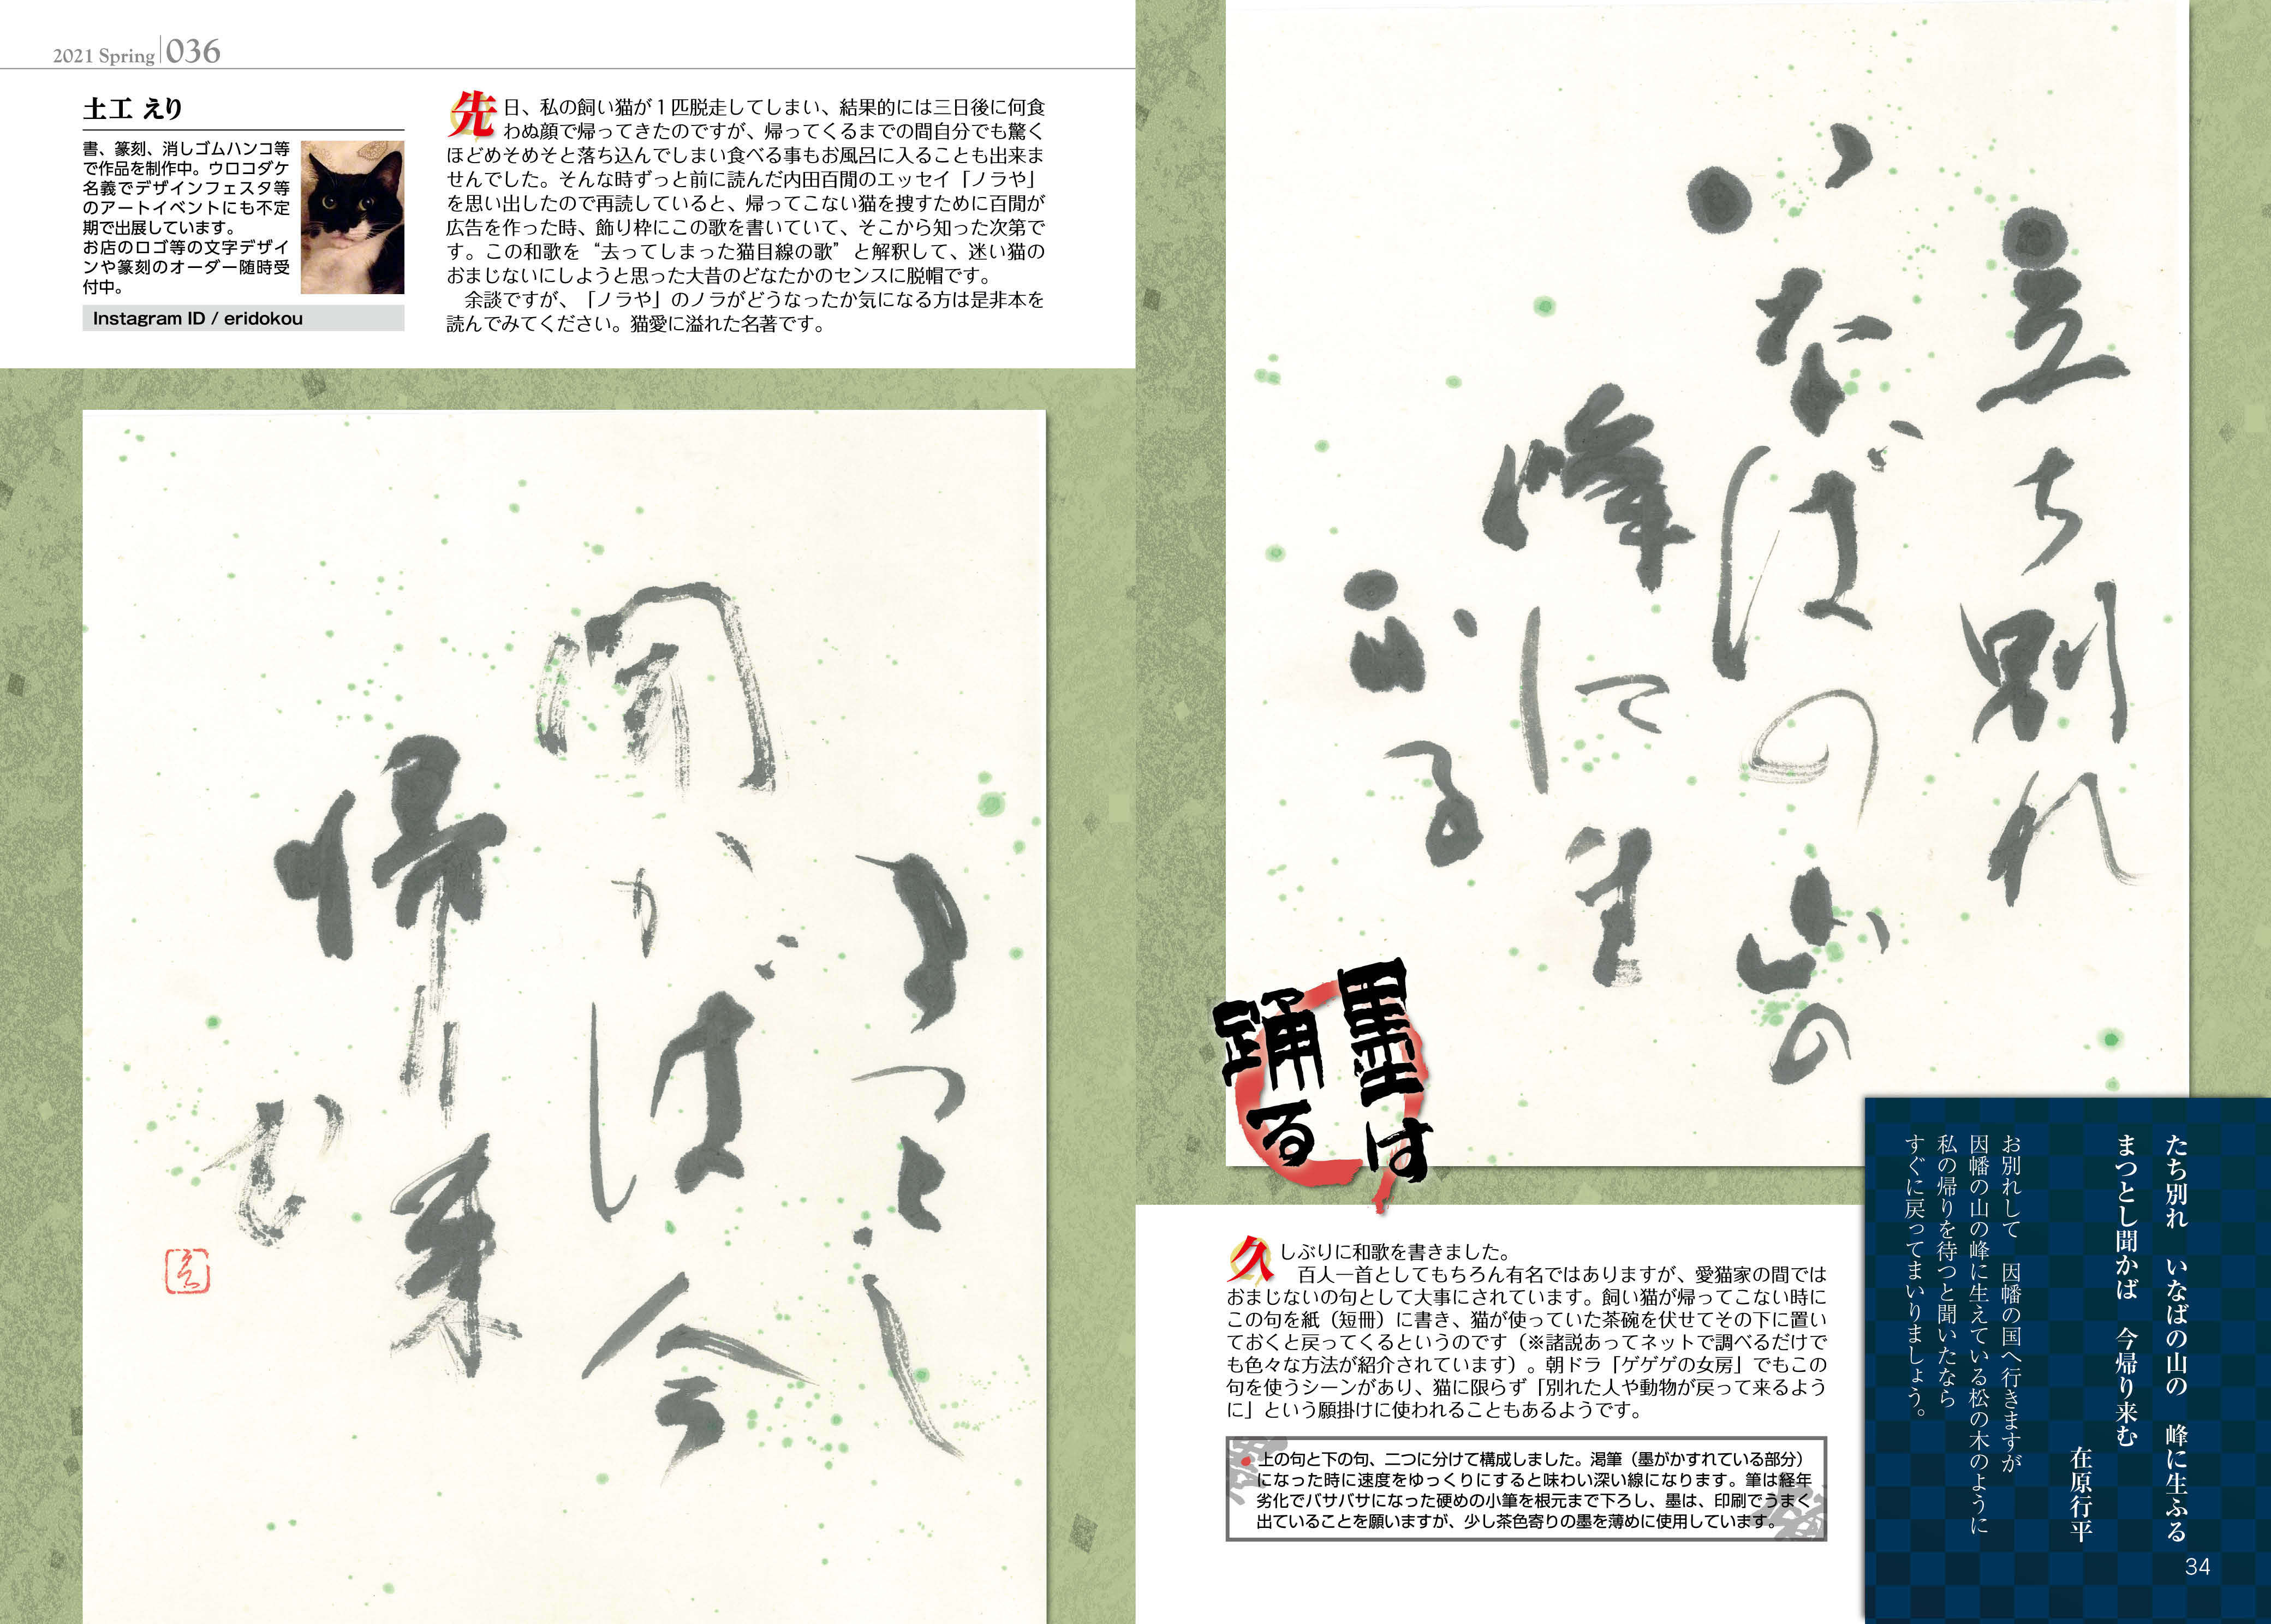 立ち別れ
いなばの山の
峰に生
ふる
墨は
踊る
たち別れ　いなばの山の　峰に生ふる
まつとし聞かば　今帰り来む
在原行平
お別れして　因幡の国へ行きますが
因幡の山の峰に生えている松の木のように
私の帰りを待つと聞いたなら
すぐに戻ってまいりましょう。
34
久しぶりに和歌を書きました。
百人一首としてもちろん有名ではありますが、愛猫家の間では
おまじないの句として大事にされています。飼い猫が帰ってこない時に
この句を紙（短冊）に書き、猫が使っていた茶碗を伏せてその下に置い
ておくと戻ってくるというのです（※諸説あってネットで調べるだけで
も色々な方法が紹介されています）。朝ドラ「ゲゲゲの女房」でもこの
句を使うシーンがあり、猫に限らず「別れた人や動物が戻って来るよう
に」という願掛けに使われることもあるようです。
●上の句と下の句、二つに分けて構成しました。渇筆（墨がかすれている部分）
になった時に速度をゆっくりにすると味わい深い線になります。筆は経年
劣化でバサバサになった硬めの小筆を根元まで下ろし、墨は、印刷でうまく
出ていることを願いますが、少し茶色寄りの墨を薄めに使用しています。
2021 Spring 036
先日、私の飼い猫が１匹脱走してしまい、結果的には三日後に何食
わぬ顔で帰ってきたのですが、帰ってくるまでの間自分でも驚く
ほどめそめそと落ち込んでしまい食べる事もお風呂に入ることも出来ま
せんでした。そんな時ずっと前に読んだ内田百閒のエッセイ「ノラや」
を思い出したので再読していると、帰ってこない猫を捜すために百閒が
広告を作った時、飾り枠にこの歌を書いていて、そこから知った次第で
す。この和歌を“去ってしまった猫目線の歌”と解釈して、迷い猫の
おまじないにしようと思った大昔のどなたかのセンスに脱帽です。
余談ですが、「ノラや」のノラがどうなったか気になる方は是非本を
読んでみてください。猫愛に溢れた名著です。
土工 えり
書、篆刻、消しゴムハンコ等
で作品を制作中。ウロコダケ
名義でデザインフェスタ等
のアートイベントにも不定
期で出展しています。
お店のロゴ等の文字デザイ
ンや篆刻のオーダー随時受
付中。
Instagram ID / eridokou
まつとし
聞かば今
帰り来
む